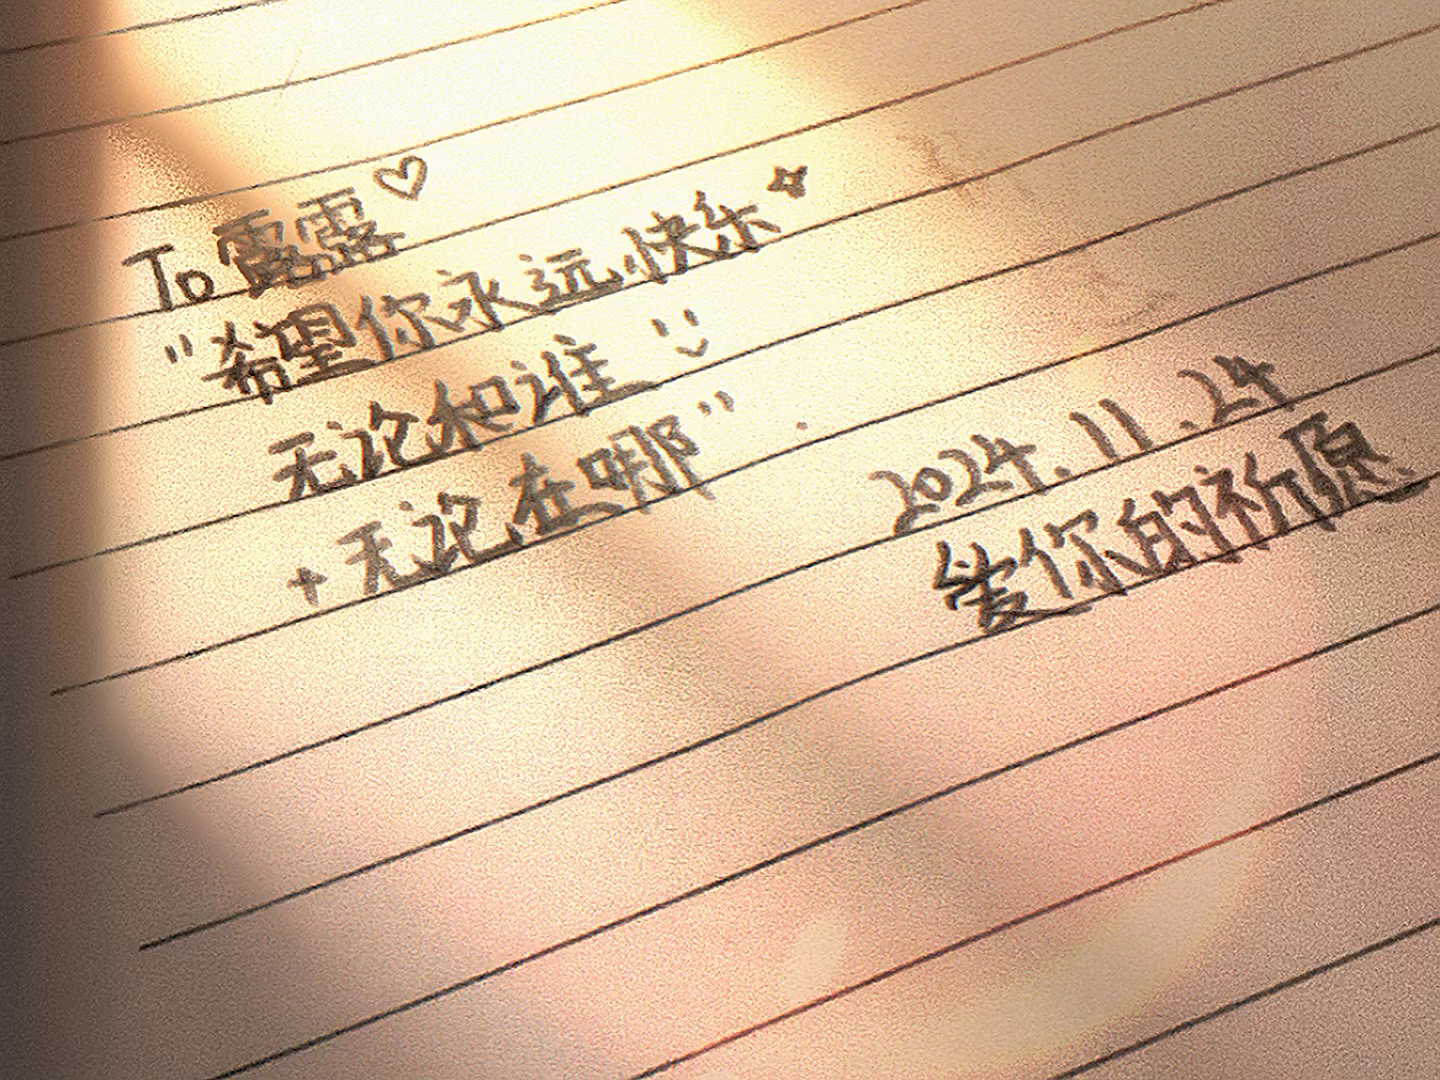 To 露露♡
"希望你永远快乐✧
无论和谁
+ 无论在哪"
2024.11.24
爱你的祈愿